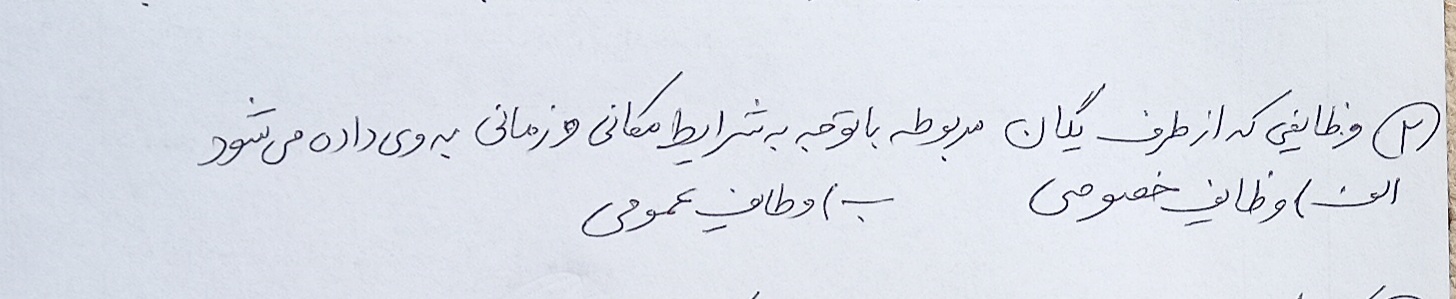 ۲) وظایفی که از طرف یگان مربوطه باتوجه به شرایط مکانی و زمانی به وی داده می‌شود
الف) وظایف خصوصی ب) وظایف عمومی